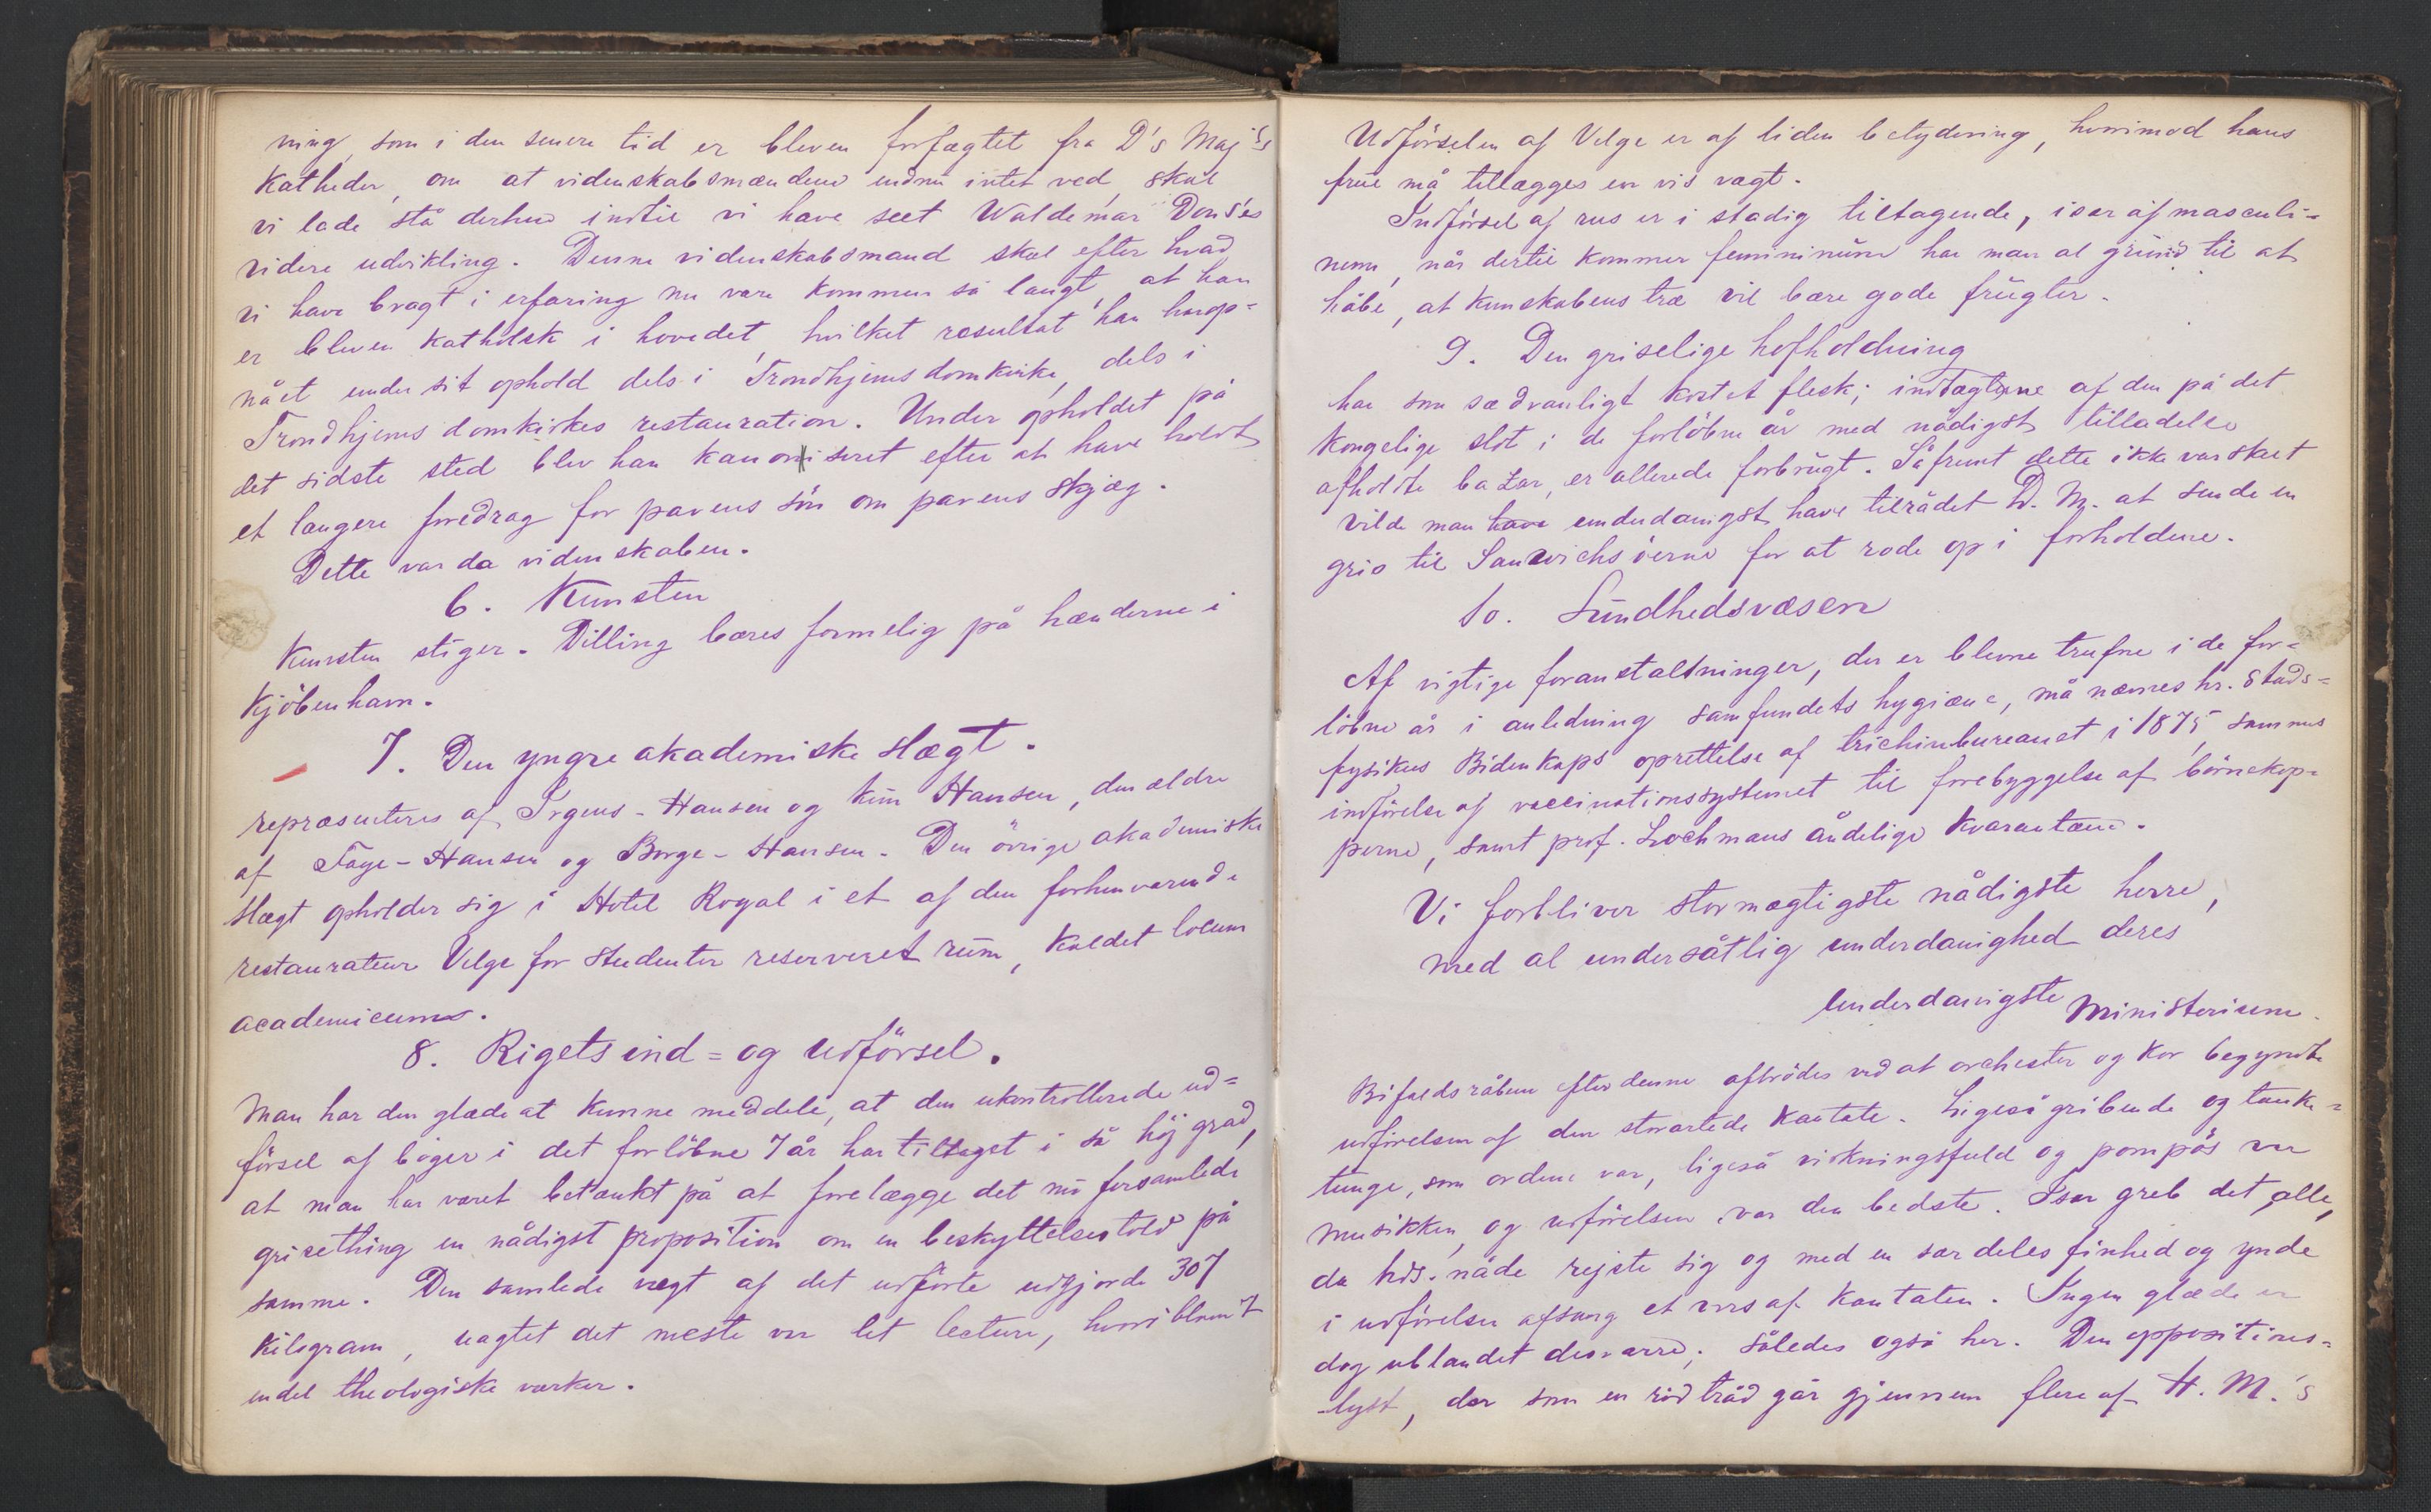 ning, som i den senere tid er bleven forfægtet fra D's Maj's
Katheder, om at videnskabsmændene endnu intet ved, skal
vi lade stå derhen indtil vi have seet Waldemar Dons'es
videre udvikling. Denne videnskabsmand skal efter hvad
vi have bragt i erfaring nu være kommen så langt, at han
er bleven katholsk i hovedet, hvilket resultat han har op-
nået under sit ophold dels i Trondhjems domkirke, dels i
Trondhjems domkirkes restauration. Under opholdet på
det sidste sted blev han kanoniseret efter at have holdt
et længere foredrag for pavens sön om pavens skjæg.
Dette var da videnskaben.
6. Kunsten
Kunsten stiger. Dilling bæres formelig på hænderne i
Kjöbenhavn.
7. Den yngre akademiske slægt.
repræsenteres af Irgens-Hansen og kun Hansen, den ældre
af Faye-Hansen og Borge-Hansen. Den övrige akademiske
slægt opholder sig i Hotel Royal i et af den forhenværende
restaurateur Velge for studenter reserveret rum, kaldet locum
academicum.
8. Rigets ind= og udförsel.
Man har den glæde at kunne meddele, at den ukontrollerede ud=
försel af böger i det forlöbne 7 år har tiltaget i så höj grad,
at man har været betænkt på at forelægge det nu forsamlede
grisething en nådigst proposition om en beskyttelsestold på
samme. Den samlede vægt af det udförte udgjorde 307
kilogram, uagtet det meste var let lecture, hvoriblandt
endel theologiske værker.
Udförselen af Velge er af liden betydning, hvorimod hans
frue må tillægges en vis vægt.
Indförsel af rus er i stadig tiltagende, især af masculi=
num, når dertil kommer femininum har man al grund til at
håbe, at kunskabens træ vil bære gode frugter.
9. Den griselige hofholdning
har som sædvanligt kostet flesk; indtægterne af den på det
kongelige slot i de forlöbne år med nådigst tilladelse
afholdte bazar, er allerede forbrugt. Såfremt dette ikke var skeet
vilde man have underdanigst have tilrådet D. M. at sende en
gris til Sandwichsöerne for at rode op i forholdene.
10. Sundhedsvæsen
Af vigtige foranstaltninger, der er blevne trufne i de for=
löbne år i anledning samfundets hygiæne, må nævnes hr. stads=
fysikus Bidenkaps oprettelse af trichinbureauet i 1875, sammes
indförelse af vaccinationssystemet til forebyggelse af börnekop=
perne, samt prof. Lochmans åndelige kvarantæne.
Vi forbliver stormægtigste nådigste herre,
med al undersåtlig underdanighed deres
underdanigste Ministerium.
Bifaldsråbene efter denne afbrödes ved at orchester og kor begyndte
udförelsen af den storartede kantate. Ligeså gribende og tanke=
tunge, som ordene var, ligeså virkningsfuld og pompös var
musikken, og udförelsen var den bedste. Især greb det alle,
da hds. nåde rejste sig og med en særdeles finhed og ynde
i udförelsen afsang et vers af kantaten. Ingen glæde er
dog ublandet desværre; således også her. Den oppositions=
-lyst, der som en röd tråd går gjennem flere af H. M.'s